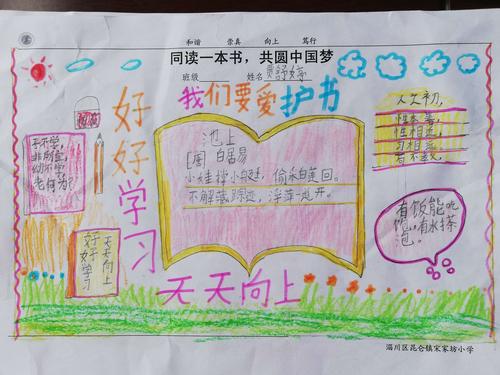 和谐 崇真 向上 笃行
同读一本书，共圆中国梦
班级 姓名
我们要爱护书
好好学习
天天向上
池上
[唐] 白居易
小娃撑小艇，偷采白莲回。
不解藏踪迹，浮萍一道开。
人之初，
性本善，
性相近，
习相远，
苟不教，
子不学，
非所宜，
幼不学，
老何为？
好好学习
天天向上
有饭能吃
饱，有水
泡。
淄川区昆仑镇宋家坊小学